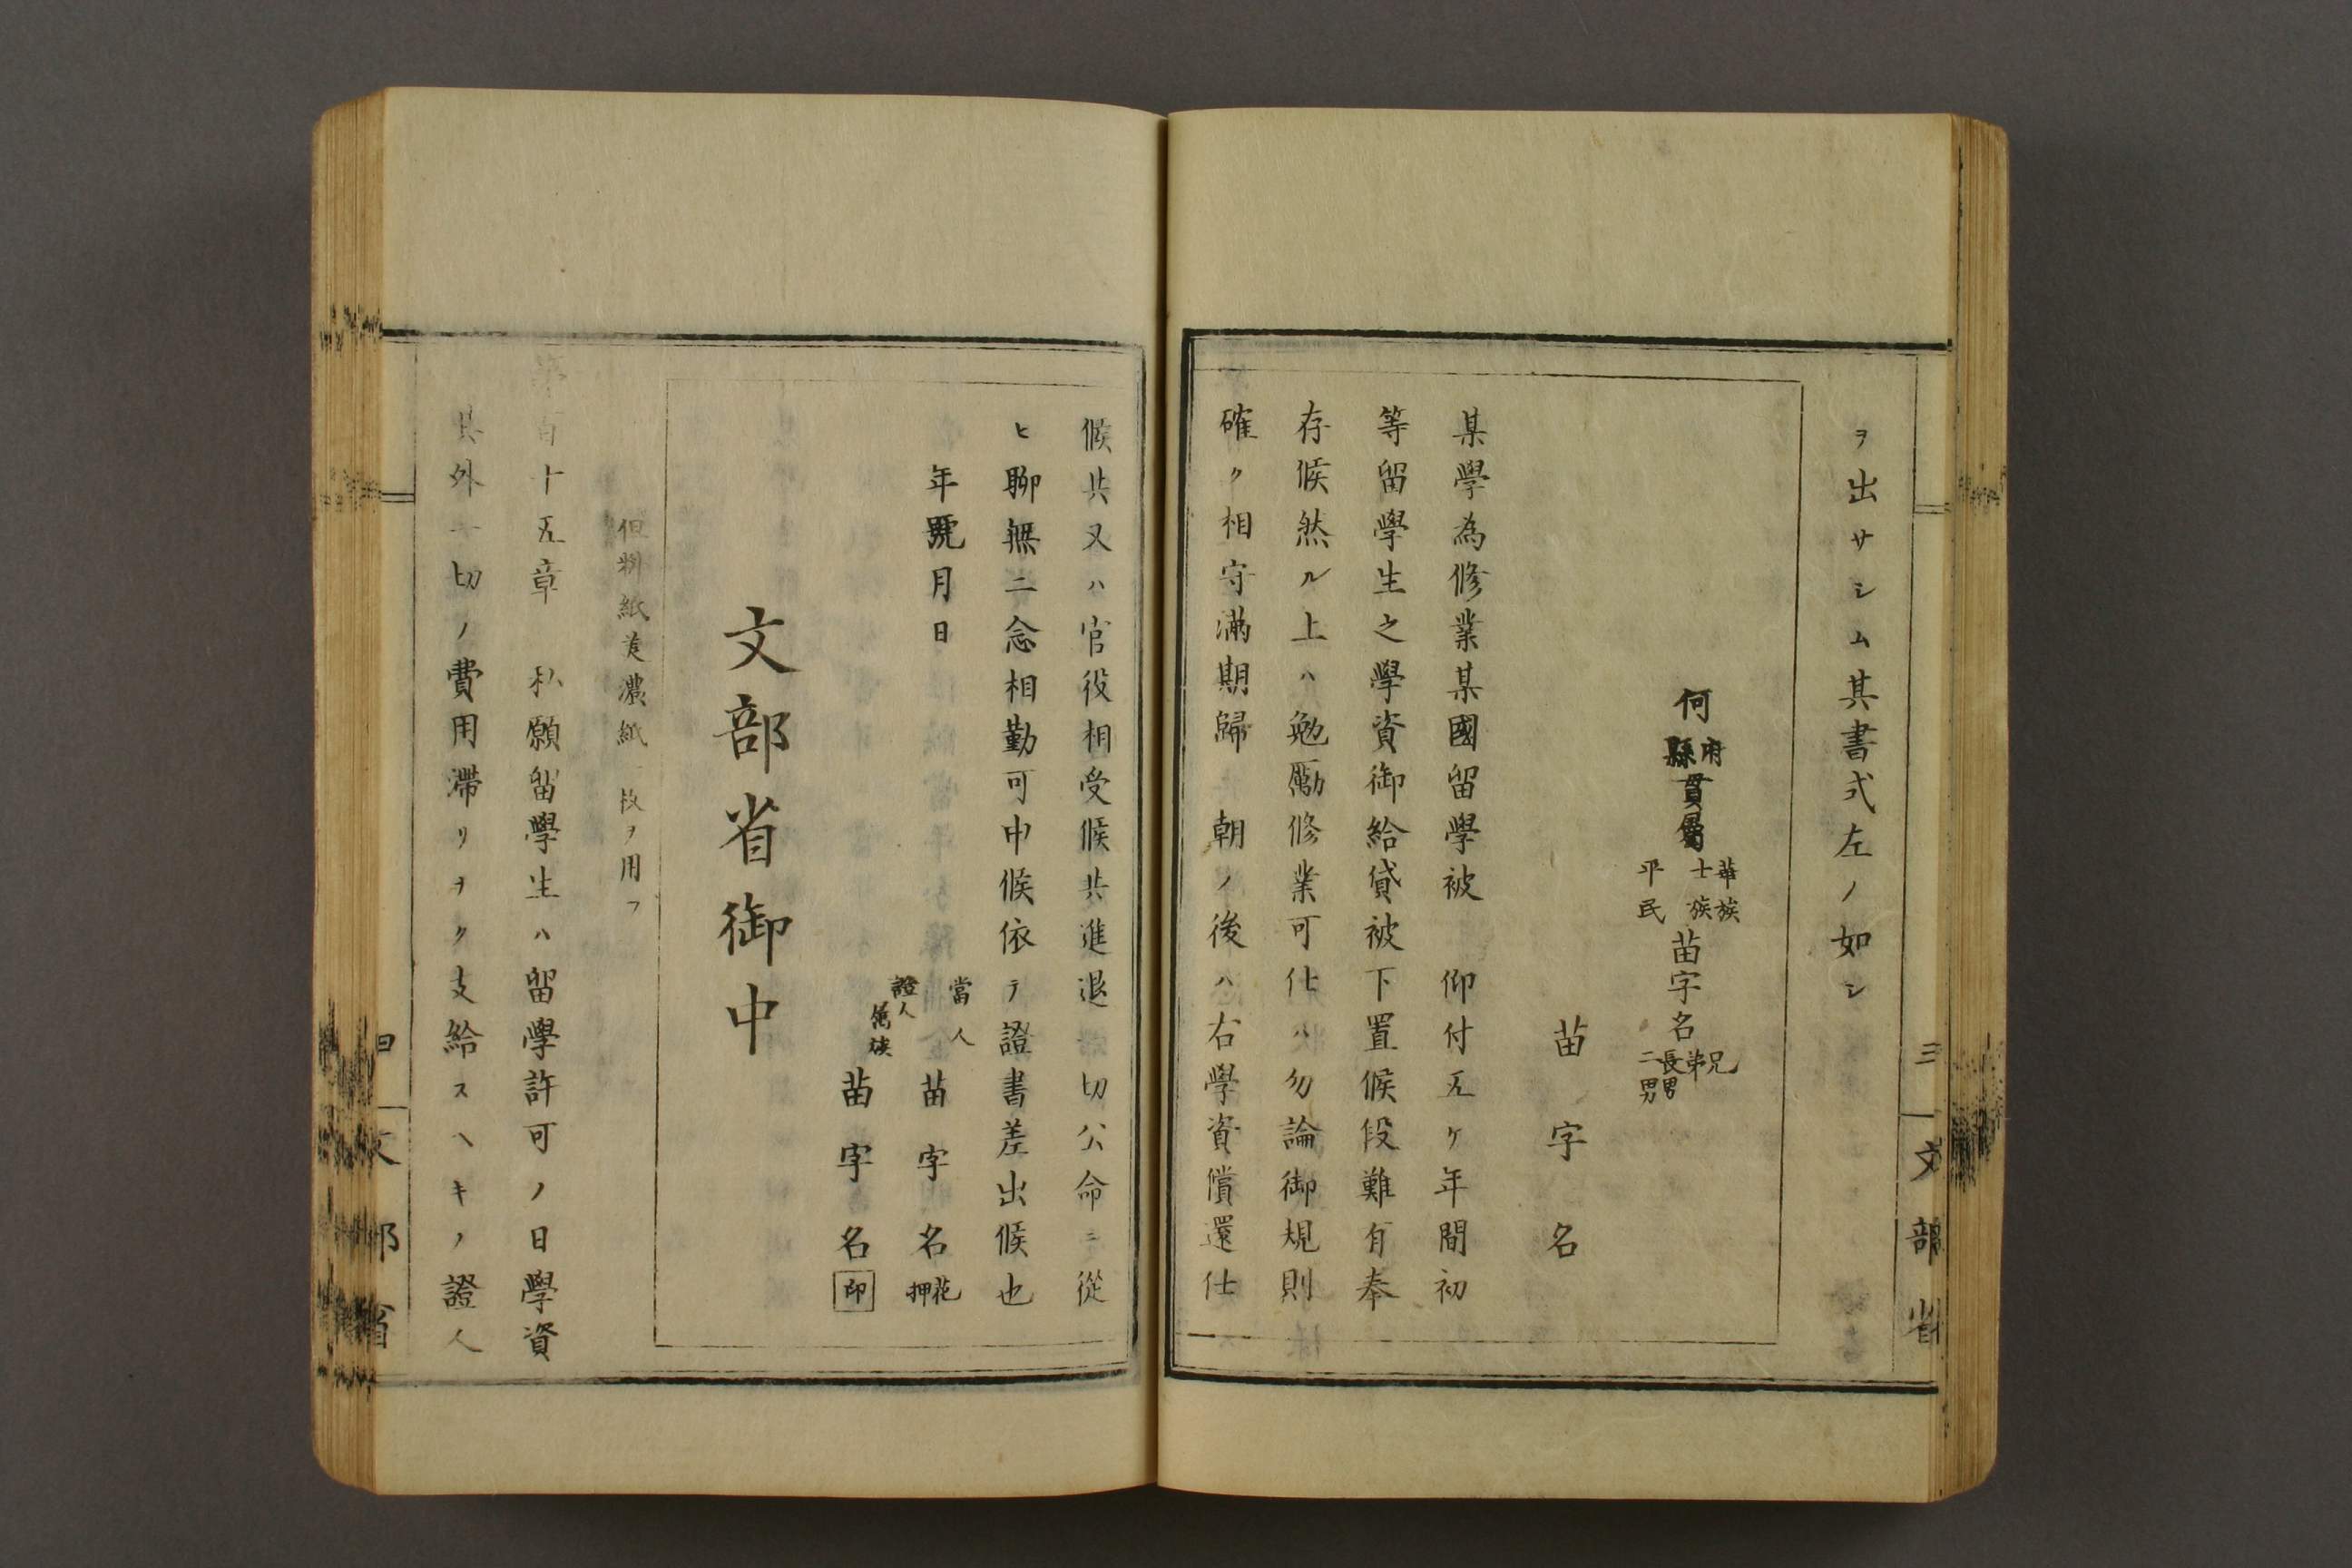 ヲ出サシム其書式左ノ如シ
何府縣貫屬華族士族平民苗字名兄弟長男二男
苗字名
某學為修業某國留學被 仰付五ケ年間初
等留學生之學資御給貸被下置候段難有奉
存候然ル上ハ勉勵修業可仕ハ勿論御規則
確ク相守滿期歸 朝ノ後ハ右學資償還仕
三 文部省
候共又ハ官役相受候共進退 切公命ニ從
ヒ聊無二念相勤可申候依テ證書差出候也
年號月日
當人 苗字名花押
證人屬族 苗字名印
文部省御中
但料紙美濃紙 枚ヲ用フ
第百十五章 私願留學生ハ留學許可ノ日學資
其外一切ノ費用滯リナク支給スヘキノ證人
四 文部省